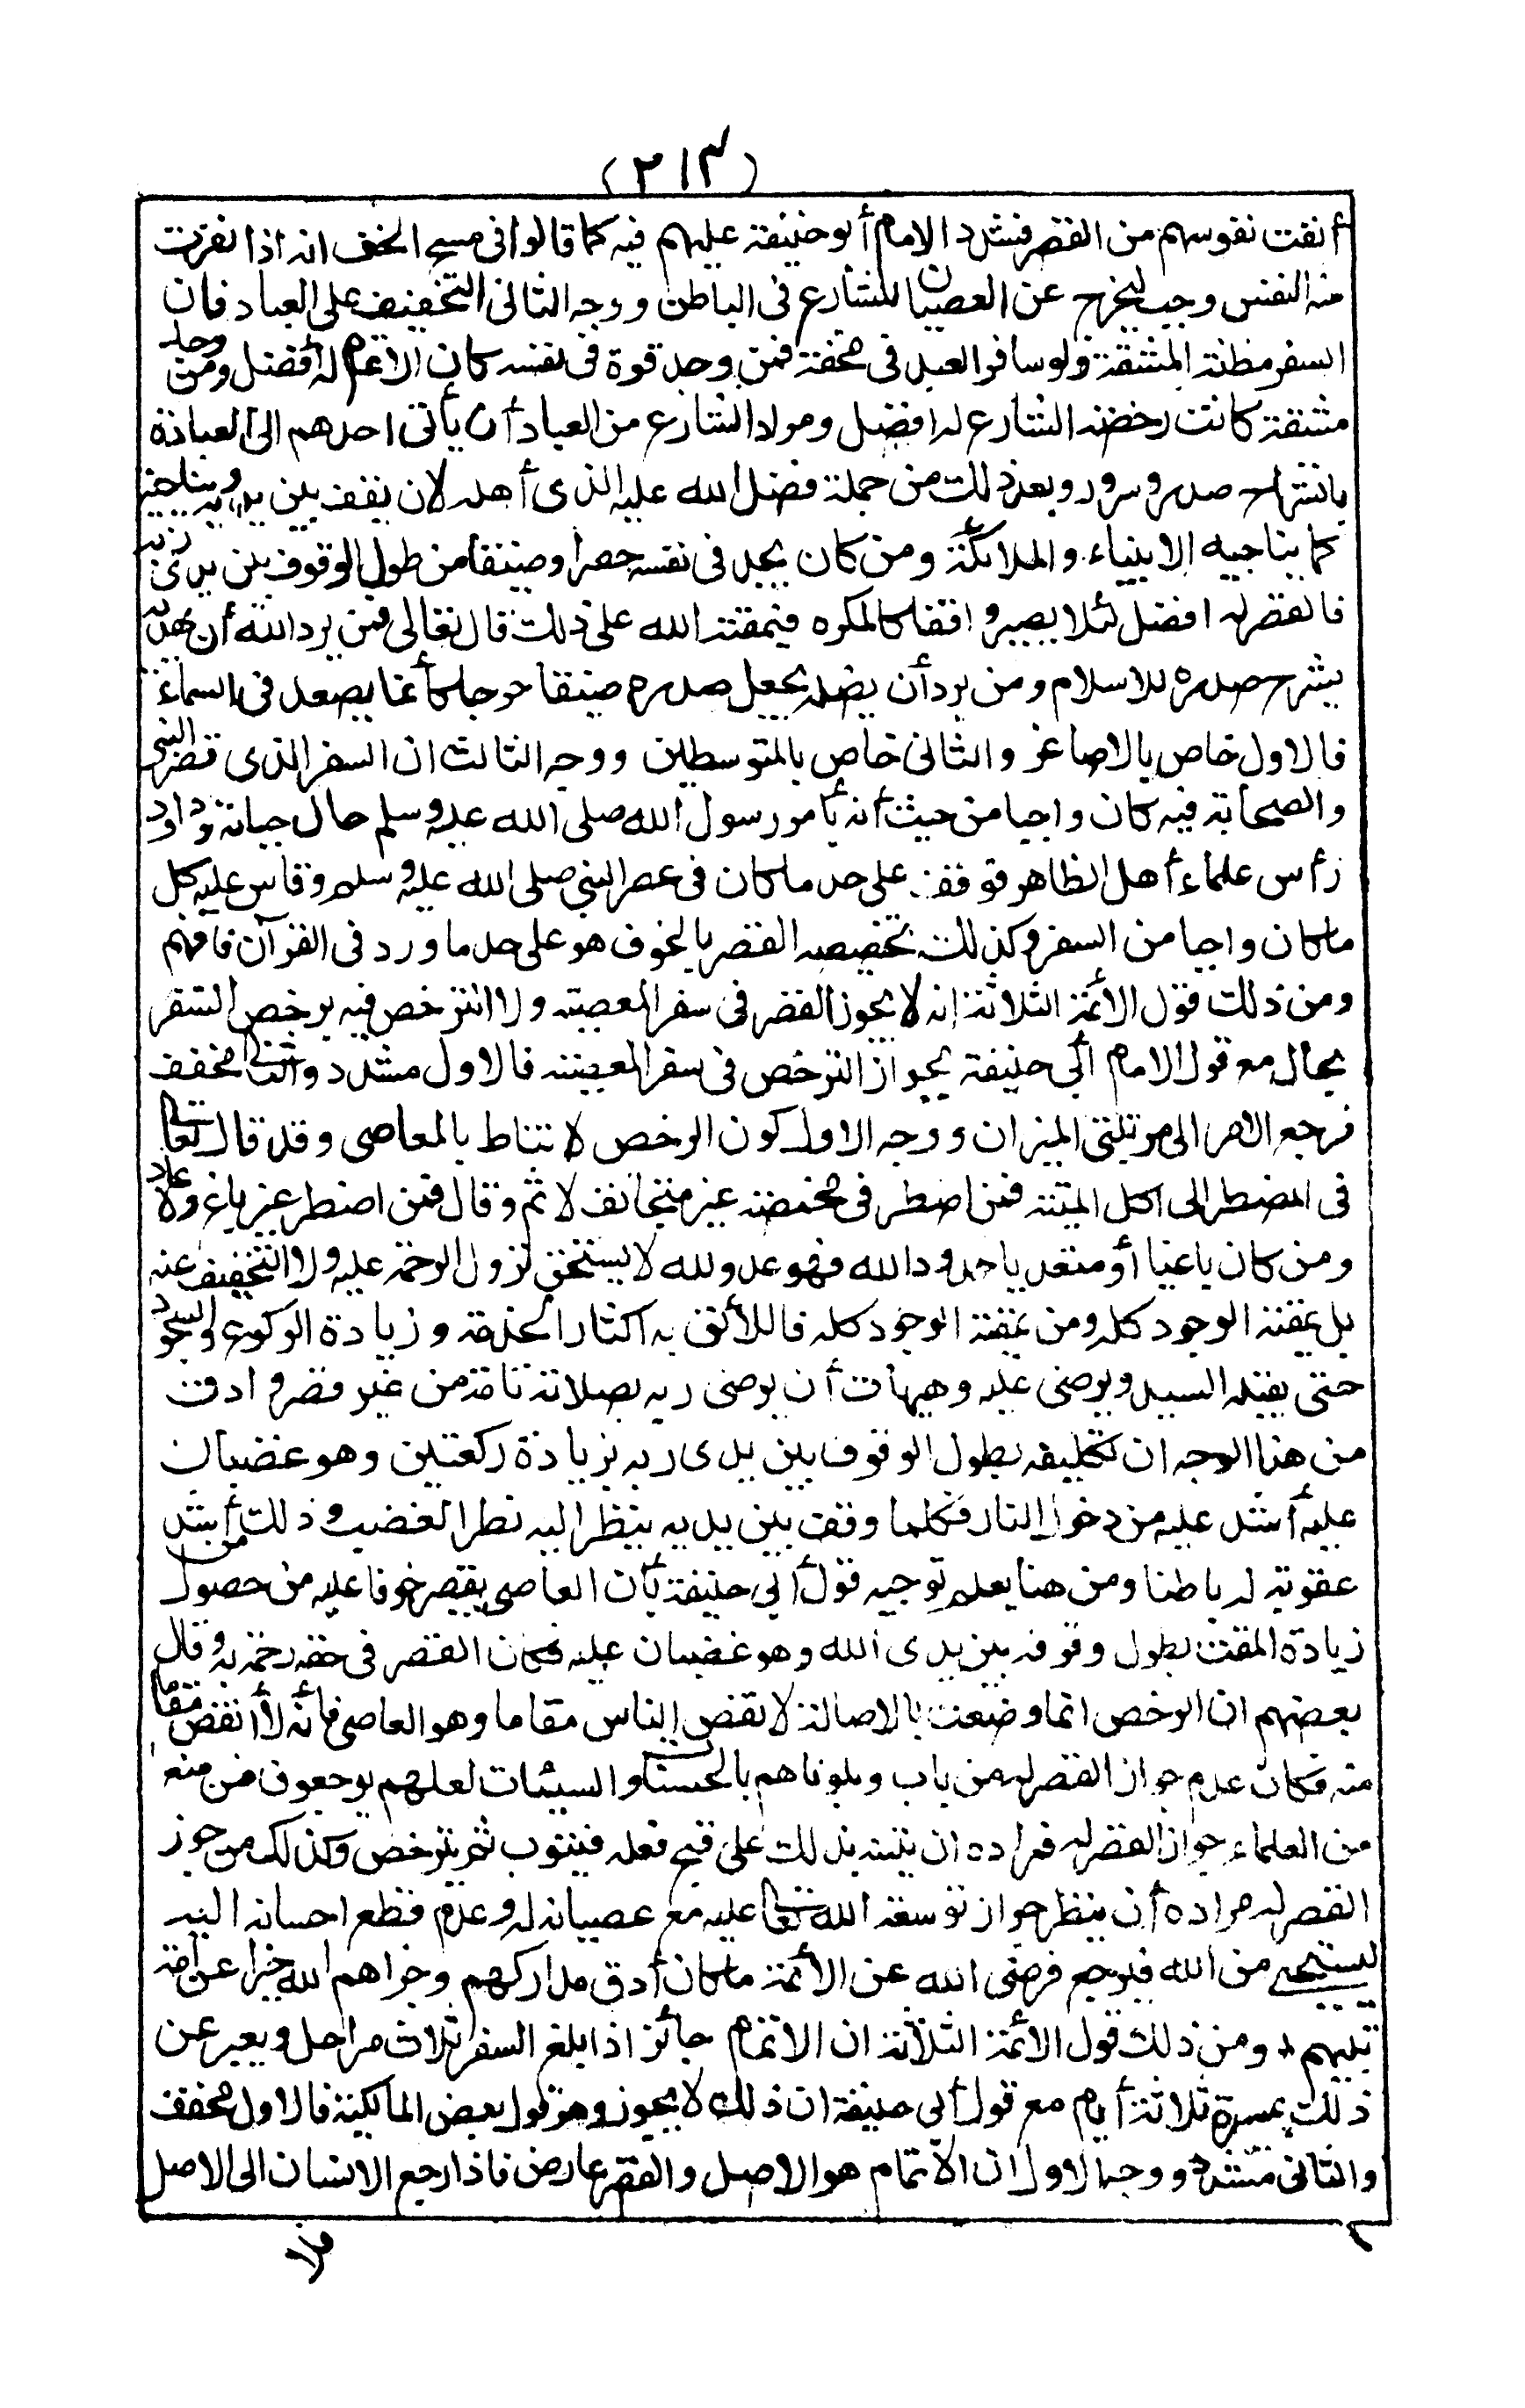 (٢١٣)
أنفت نفوسهم من القصر فشدد الامام أبو حنيفة عليهم فيه كما قالوا فى مسح الخف انه اذا نفرت
منه النفس وجب ليخرج عن العصيان للشارع فى الباطن ووجه الثانى التخفيف على العباد فان
السفر مظنة المشقة ولو سافر العبد فى محفة فمن وجد قوة فى نفسه كان الاتمام له أفضل ومن وجد
مشقة كانت رخصة الشارع له افضل ومراد الشارع من العباد أن يأتى احدهم الى العبادة
بانشراح صدر وسرور ويعد ذلك من جملة فضل الله عليه الذى أهله لان يقف بين يديه ويناجيه
كما يناجيه الانبياء والملائكة ومن كان يجد فى نفسه حصرا وضيقا من طول الوقوف بين يدى ربه
فالقصر له افضل لئلا يصير واقفا كالمكره فيمقته الله على ذلك قال تعالى فمن يرد الله أن يهديه
يشرح صدره للاسلام ومن يرد أن يضله يجعل صدره ضيقا حرجا كأنما يصعد فى السماء
فالاول خاص بالاصاغر والثانى خاص بالمتوسطين ووجه الثالث ان السفر الذى قصر النبى
والصحابة فيه كان واجبا من حيث أنه بأمر رسول الله صلى الله عليه وسلم حال حياته وداود
رأس علماء أهل الظاهر فوقف على حد ما كان فى عصر النبى صلى الله عليه وسلم وقاس عليه كل
ما كان واجبا من السفر وكذلك تخصيصه القصر بالخوف هو على حد ما ورد فى القرآن فافهم
ومن ذلك قول الأئمة الثلاثة إنه لا يجوز القصر فى سفر المعصية ولا الترخص فيه برخص السفر
بحال مع قول الامام أبى حنيفة بجواز الترخص فى سفر المعصية فالاول مشدد والثانى مخفف
فرجع الامر الى مرتبتى الميزان ووجه الاول كون الرخص لا تناط بالمعاصى وقد قال تعالى
فى المضطر الى اكل الميتة فمن اضطر فى مخمصة غير متجانف لاثم وقال فمن اضطر غير باغ ولا عاد
ومن كان باغيا أو متعديا حدود الله فهو عدو لله لا يستحق نزول الرحمة عليه ولا التخفيف عنه
بل يمقته الوجود كله ومن يمقته الوجود كله فاللائق به اكثار الخدمة وزيادة الركوع والسجود
حتى يقبله السيد ويرضى عليه وهيهات أن يرضى ربه بصلاته تامة من غير قصر وادق
من هذا الوجه ان تكليفه بطول الوقوف بين يدى ربه بزيادة ركعتين وهو غضبان
عليه أشد عليه من دخول النار فكلما وقف بين يديه ينظر اليه نظر الغضب وذلك من أشد
عقوبة له باطنا ومن هنا يعلم توجيه قول أبى حنيفة بأن العاصى يقصر خوفا عليه من حصول
زيادة المقت بطول وقوفه بين يدى الله وهو غضبان عليه فكان القصر فى حقه رحمة به وقال
بعضهم ان الرخص انما وضعت بالاصالة لانقص الناس مقاما وهو العاصى فانه لا أنقص مقاما
منه فكان عدم جواز القصر له من باب وبلوناهم بالحسنات والسيئات لعلهم يرجعون فمن منع
من العلماء جواز القصر له فمراده ان يتنبه بذلك على قبح فعله فيتوب ثم يترخص وكذلك من جوز
القصر له مراده أن ينظر جواز توسعة الله تعالى عليه مع عصيانه له وعدم قطع احسانه اليه
ليستحى من الله فيرجع فرضى الله عن الأئمة ما كان أدق مداركهم وجزاهم الله خيرا عن امة
نبيهم ومن ذلك قول الأئمة الثلاثة ان الاتمام جائز اذا بلغ السفر ثلاث مراحل ويعبر عن
ذلك بمسيرة ثلاثة أيام مع قول أبى حنيفة ان ذلك لا يجوز وهو قول بعض المالكية فالاول مخفف
والثانى مشدد ووجه الاول ان الاتمام هو الاصل والقصر عارض فاذا رجع الانسان الى الاصل